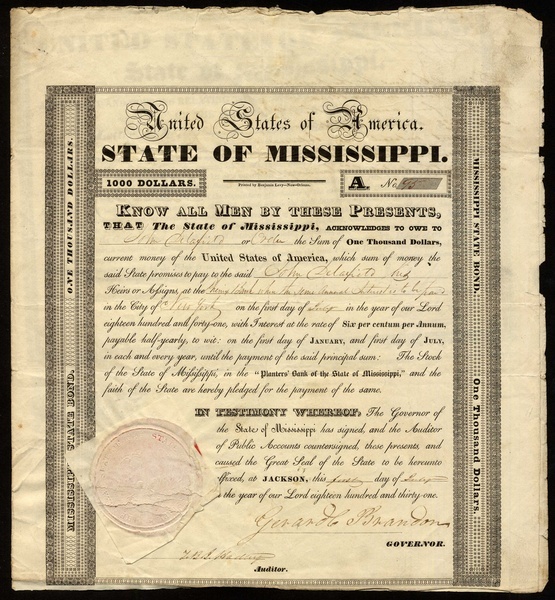 United States of America.
STATE OF MISSISSIPPI.
1000 DOLLARS.
Printed by Benjamin Levy—New-Orleans.
A. No.
KNOW ALL MEN BY THESE PRESENTS,
THAT The State of Mississippi, ACKNOWLEDGES TO OWE TO
John Delafield or Order the Sum of One Thousand Dollars,
current money of the United States of America, which sum of money the
said State promises to pay to the said John Delafield his
Heirs or Assigns, at the
in the City of New York on the first day of July in the year of our Lord
eighteen hundred and forty-one, with Interest at the rate of Six per centum per Annum,
payable half-yearly, to wit: on the first day of JANUARY, and first day of JULY,
in each and every year, until the payment of the said principal sum: The Stock
of the State of Mississippi, in the "Planters' Bank of the State of Mississippi," and the
faith of the State are hereby pledged for the payment of the same.
IN TESTIMONY WHEREOF, The Governor of
the State of Mississippi has signed, and the Auditor
of Public Accounts countersigned, these presents, and
caused the Great Seal of the State to be hereunto
affixed, at JACKSON, this first day of July
the year of our Lord eighteen hundred and thirty-one.
Gerard C Brandon
GOVERNOR.
Auditor.
MISSISSIPPI STATE BOND.
ONE THOUSAND DOLLARS.
MISSISSIPPI STATE BOND.
One Thousand Dollars.